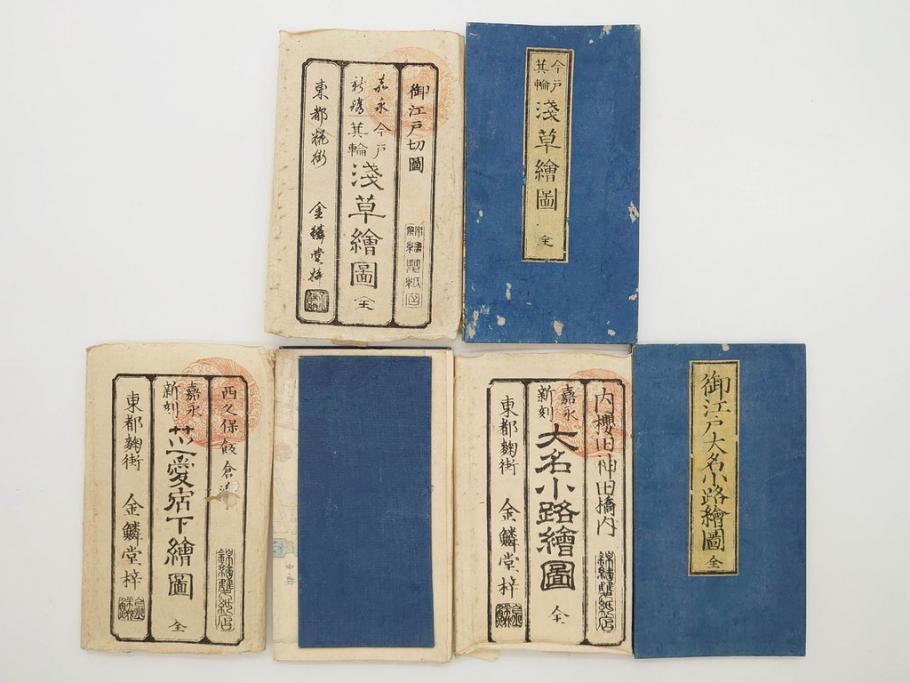 御江戸切圖
嘉永
新鐫
今戸
箕輪
淺草繪圖
全
東都麹街
金鱗堂梓
今戸
箕輪
淺草繪圖
全
西久保飯倉
嘉永
新刻
芝愛宕下繪圖
全
東都麹街 金鱗堂梓
内櫻田神田橋内
嘉永
新刻
大名小路繪圖
全
東都麹街 金鱗堂梓
御江戸大名小路繪圖
全